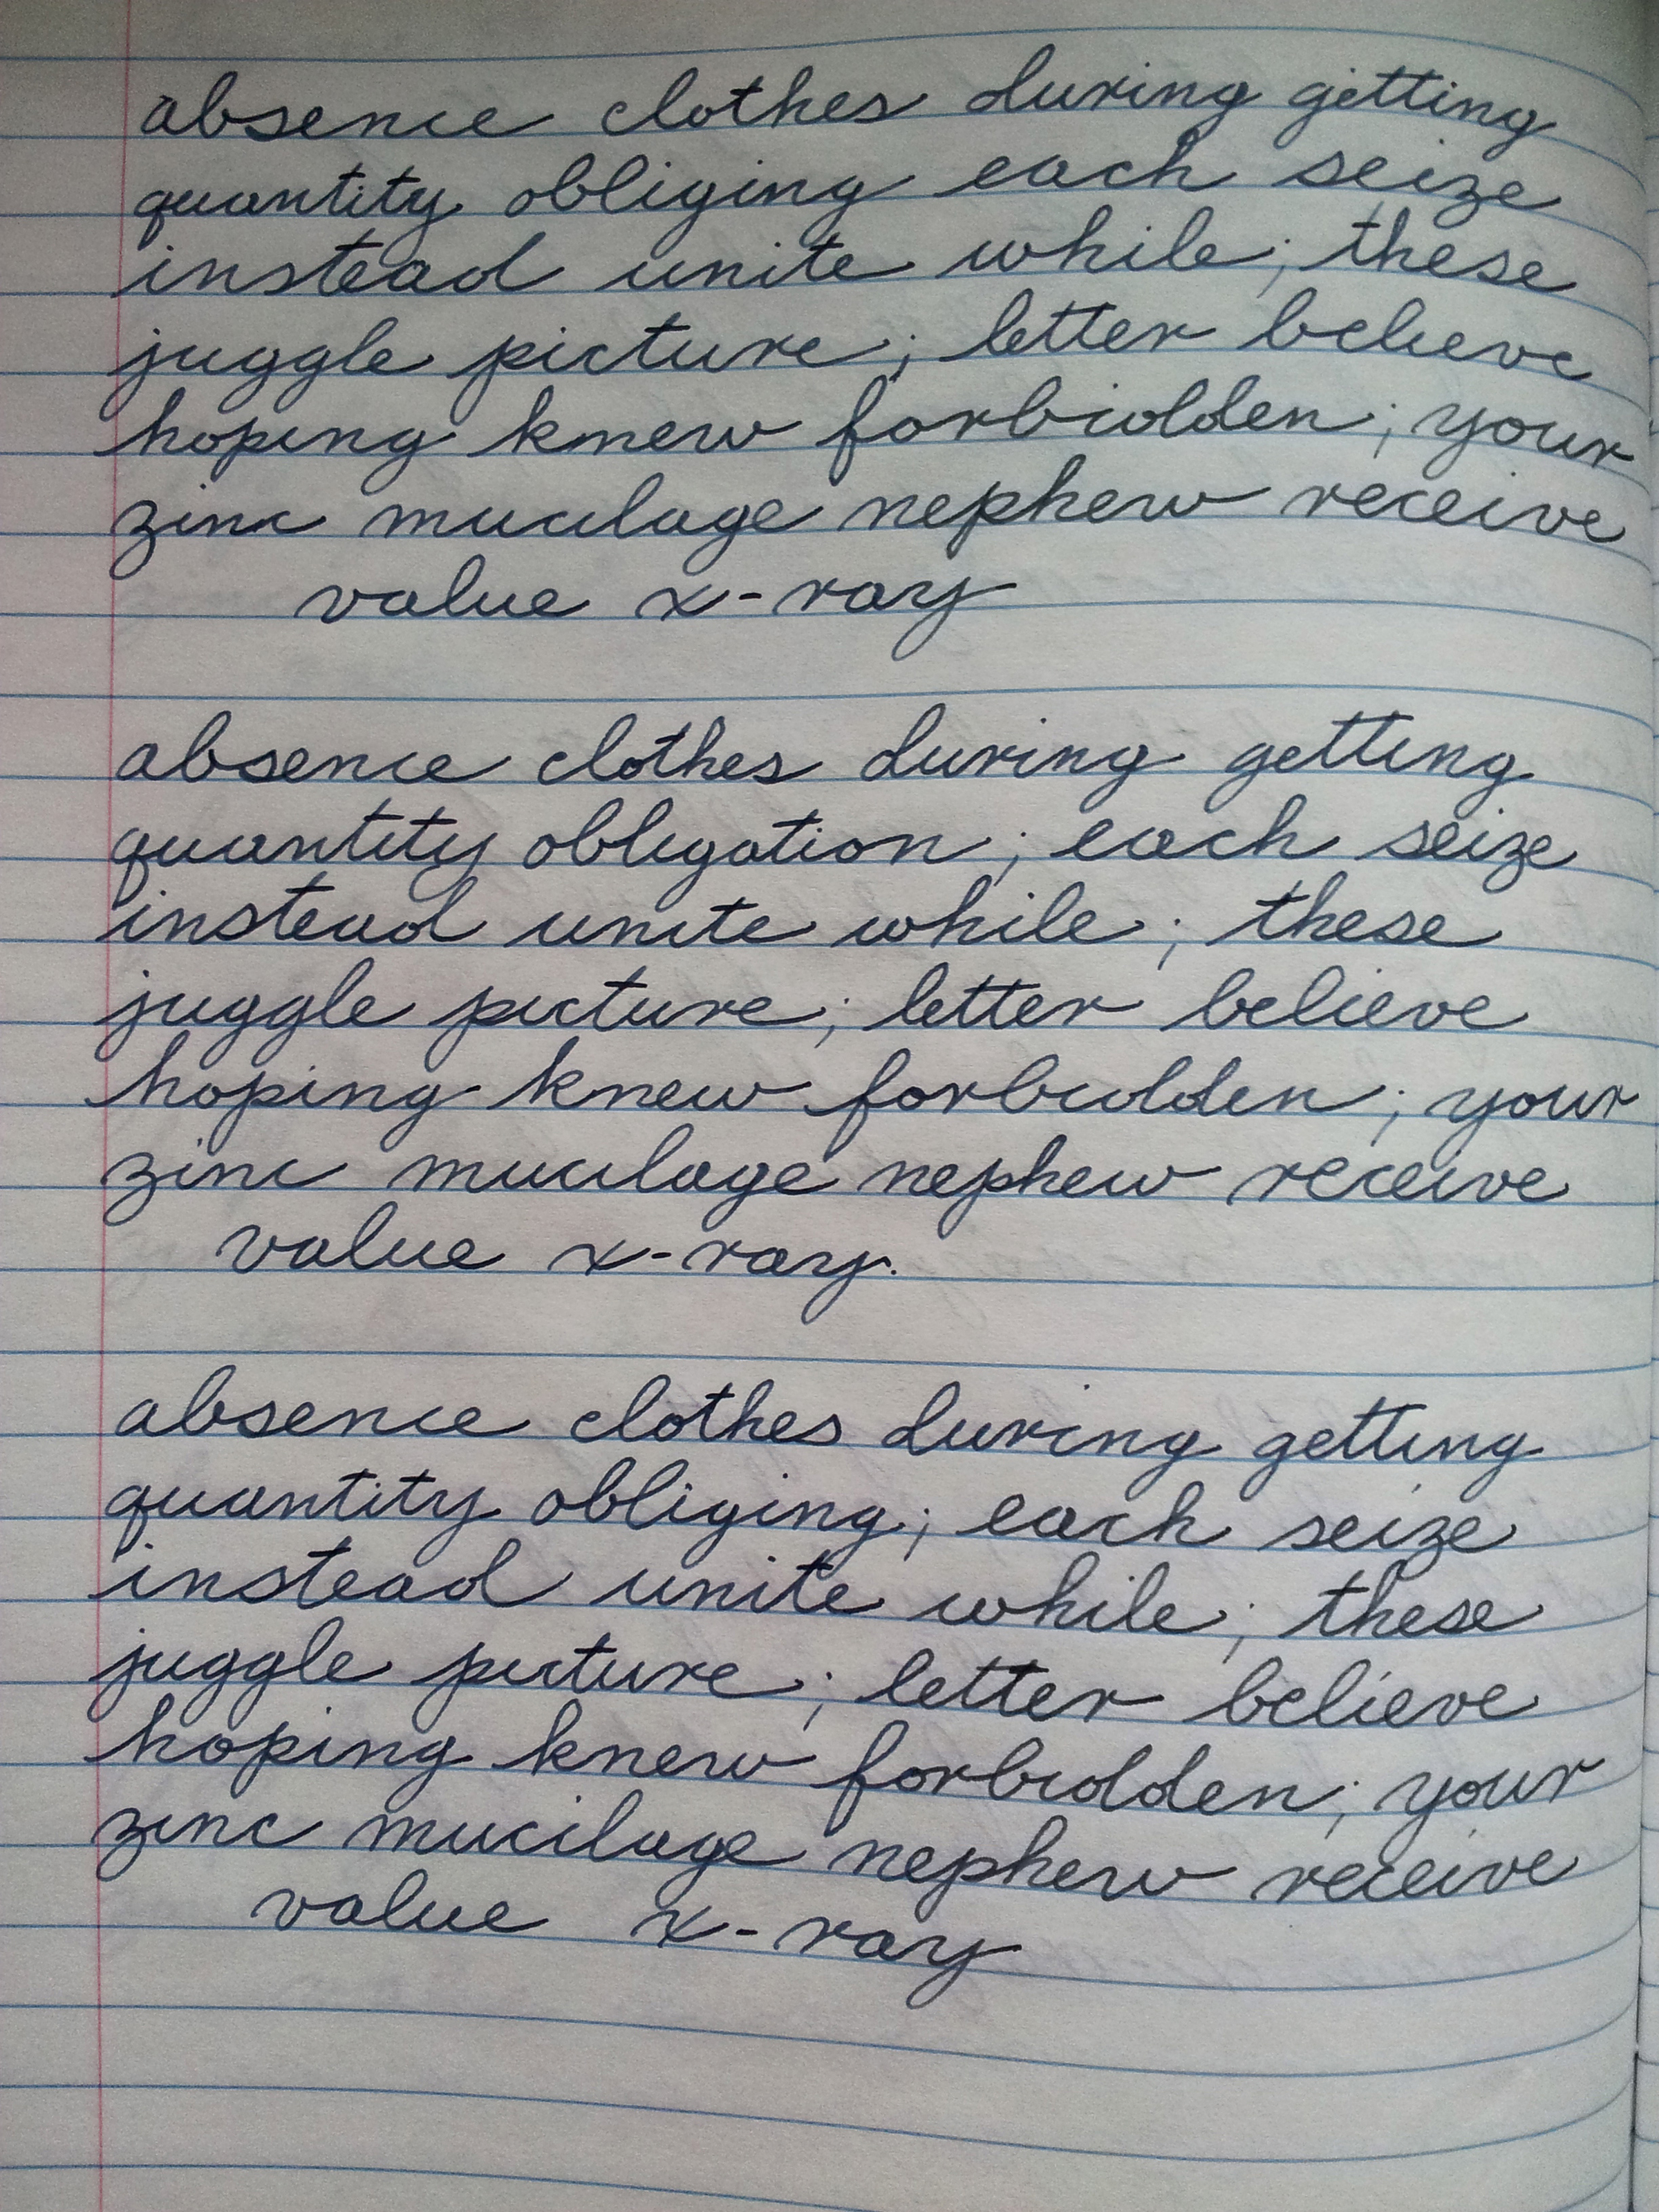 absence clothes during getting
quantity obliging each seize
instead unite while; these
juggle picture; letter believe
hoping knew forbidden; your
zinc mucilage nephew receive
value x-ray
absence clothes during getting
quantity obligation; each seize
instead unite while; these
juggle picture; letter believe
hoping knew forbidden; your
zinc mucilage nephew receive
value x-ray.
absence clothes during getting
quantity obliging; each seize
instead unite while; these
juggle picture; letter believe
hoping knew forbidden; your
zinc mucilage nephew receive
value x-ray